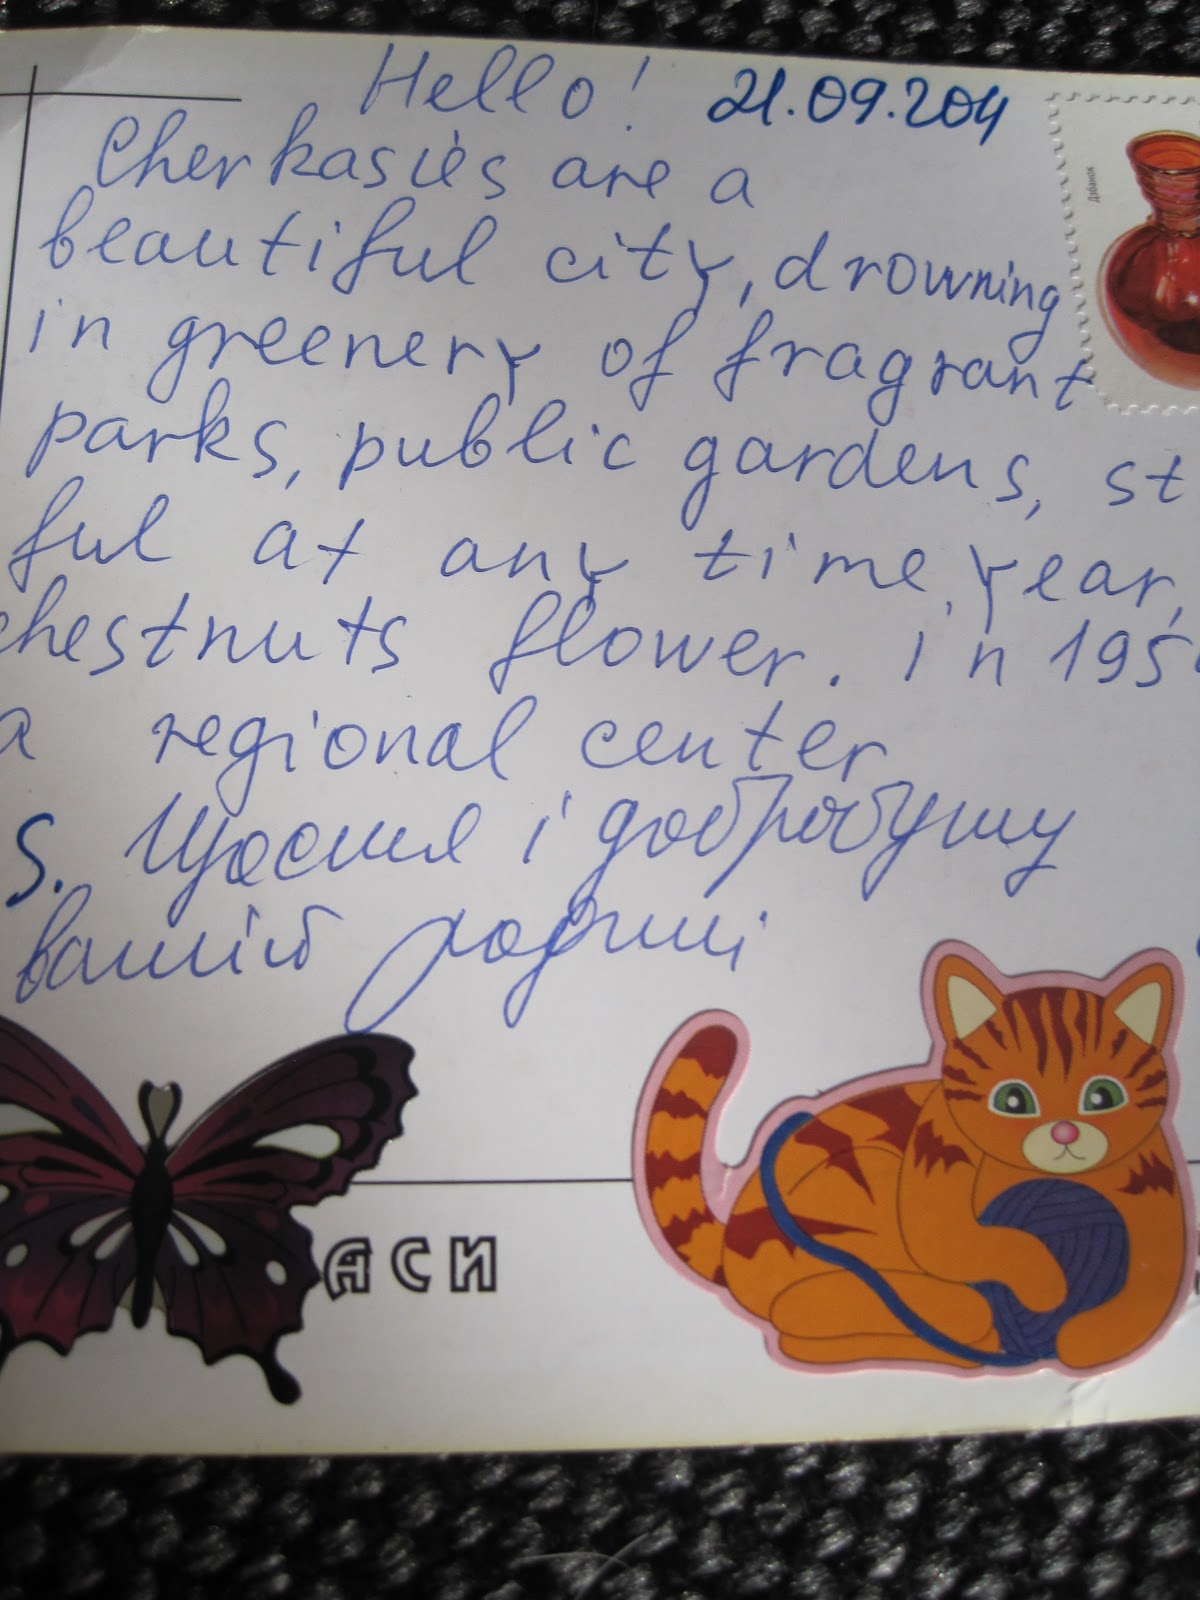 Hello! 21.09.204
Cherkasies are a
beautiful city, drowning
in greenery of fragrant
parks, public gardens, st
ful at any time year,
chestnuts flower. in 195
a regional center
S. Щастя і добробуту
вашій родині
АСИ
Дзбанок